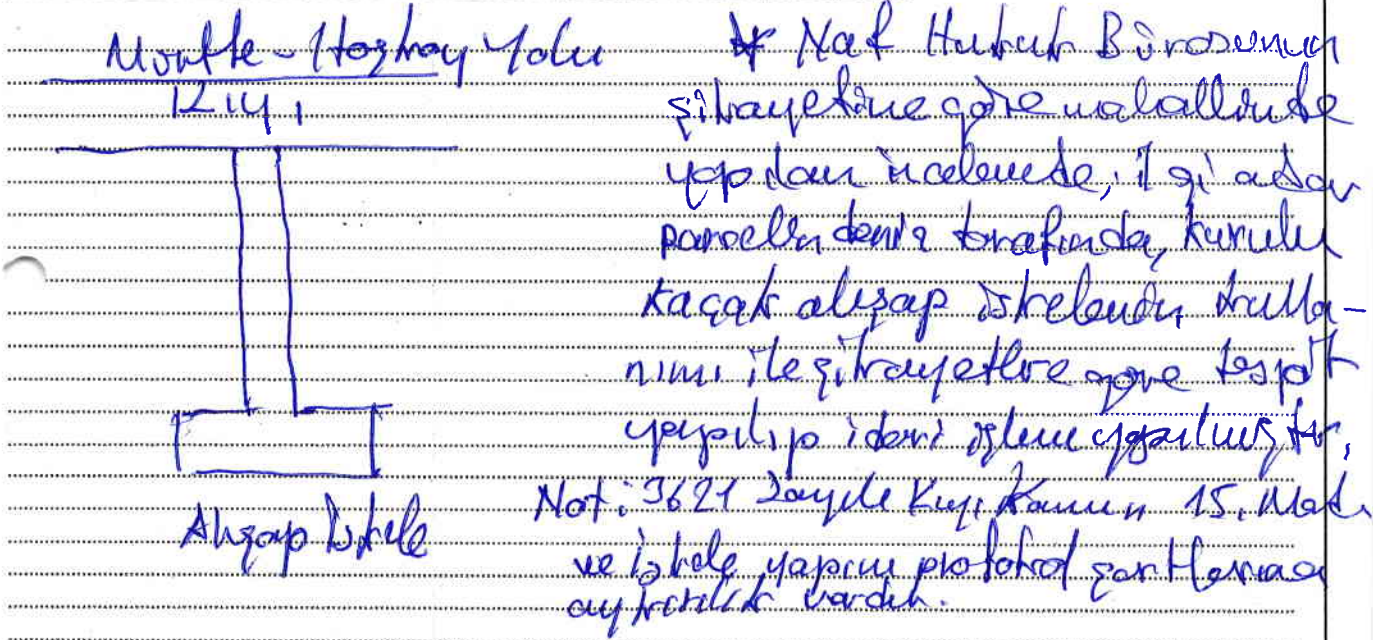 Yolu
Kıyı
Ahşap İskele
* Naf Hukuk Bürosunun
şikayetine göre mahallinde
yapılan incelemede, ilgi adar
parselin deniz tarafında, kurulu
kaçak ahşap iskelenin kulla-
nımı ile şikayetlere göre tespit
yapılıp idari işlem yapılmıştır.
Not: 3621 Sayılı Kıyı Kanunu 15. Mad.
ve iskele yapım protokol şartlarına
aykırılık vardır.